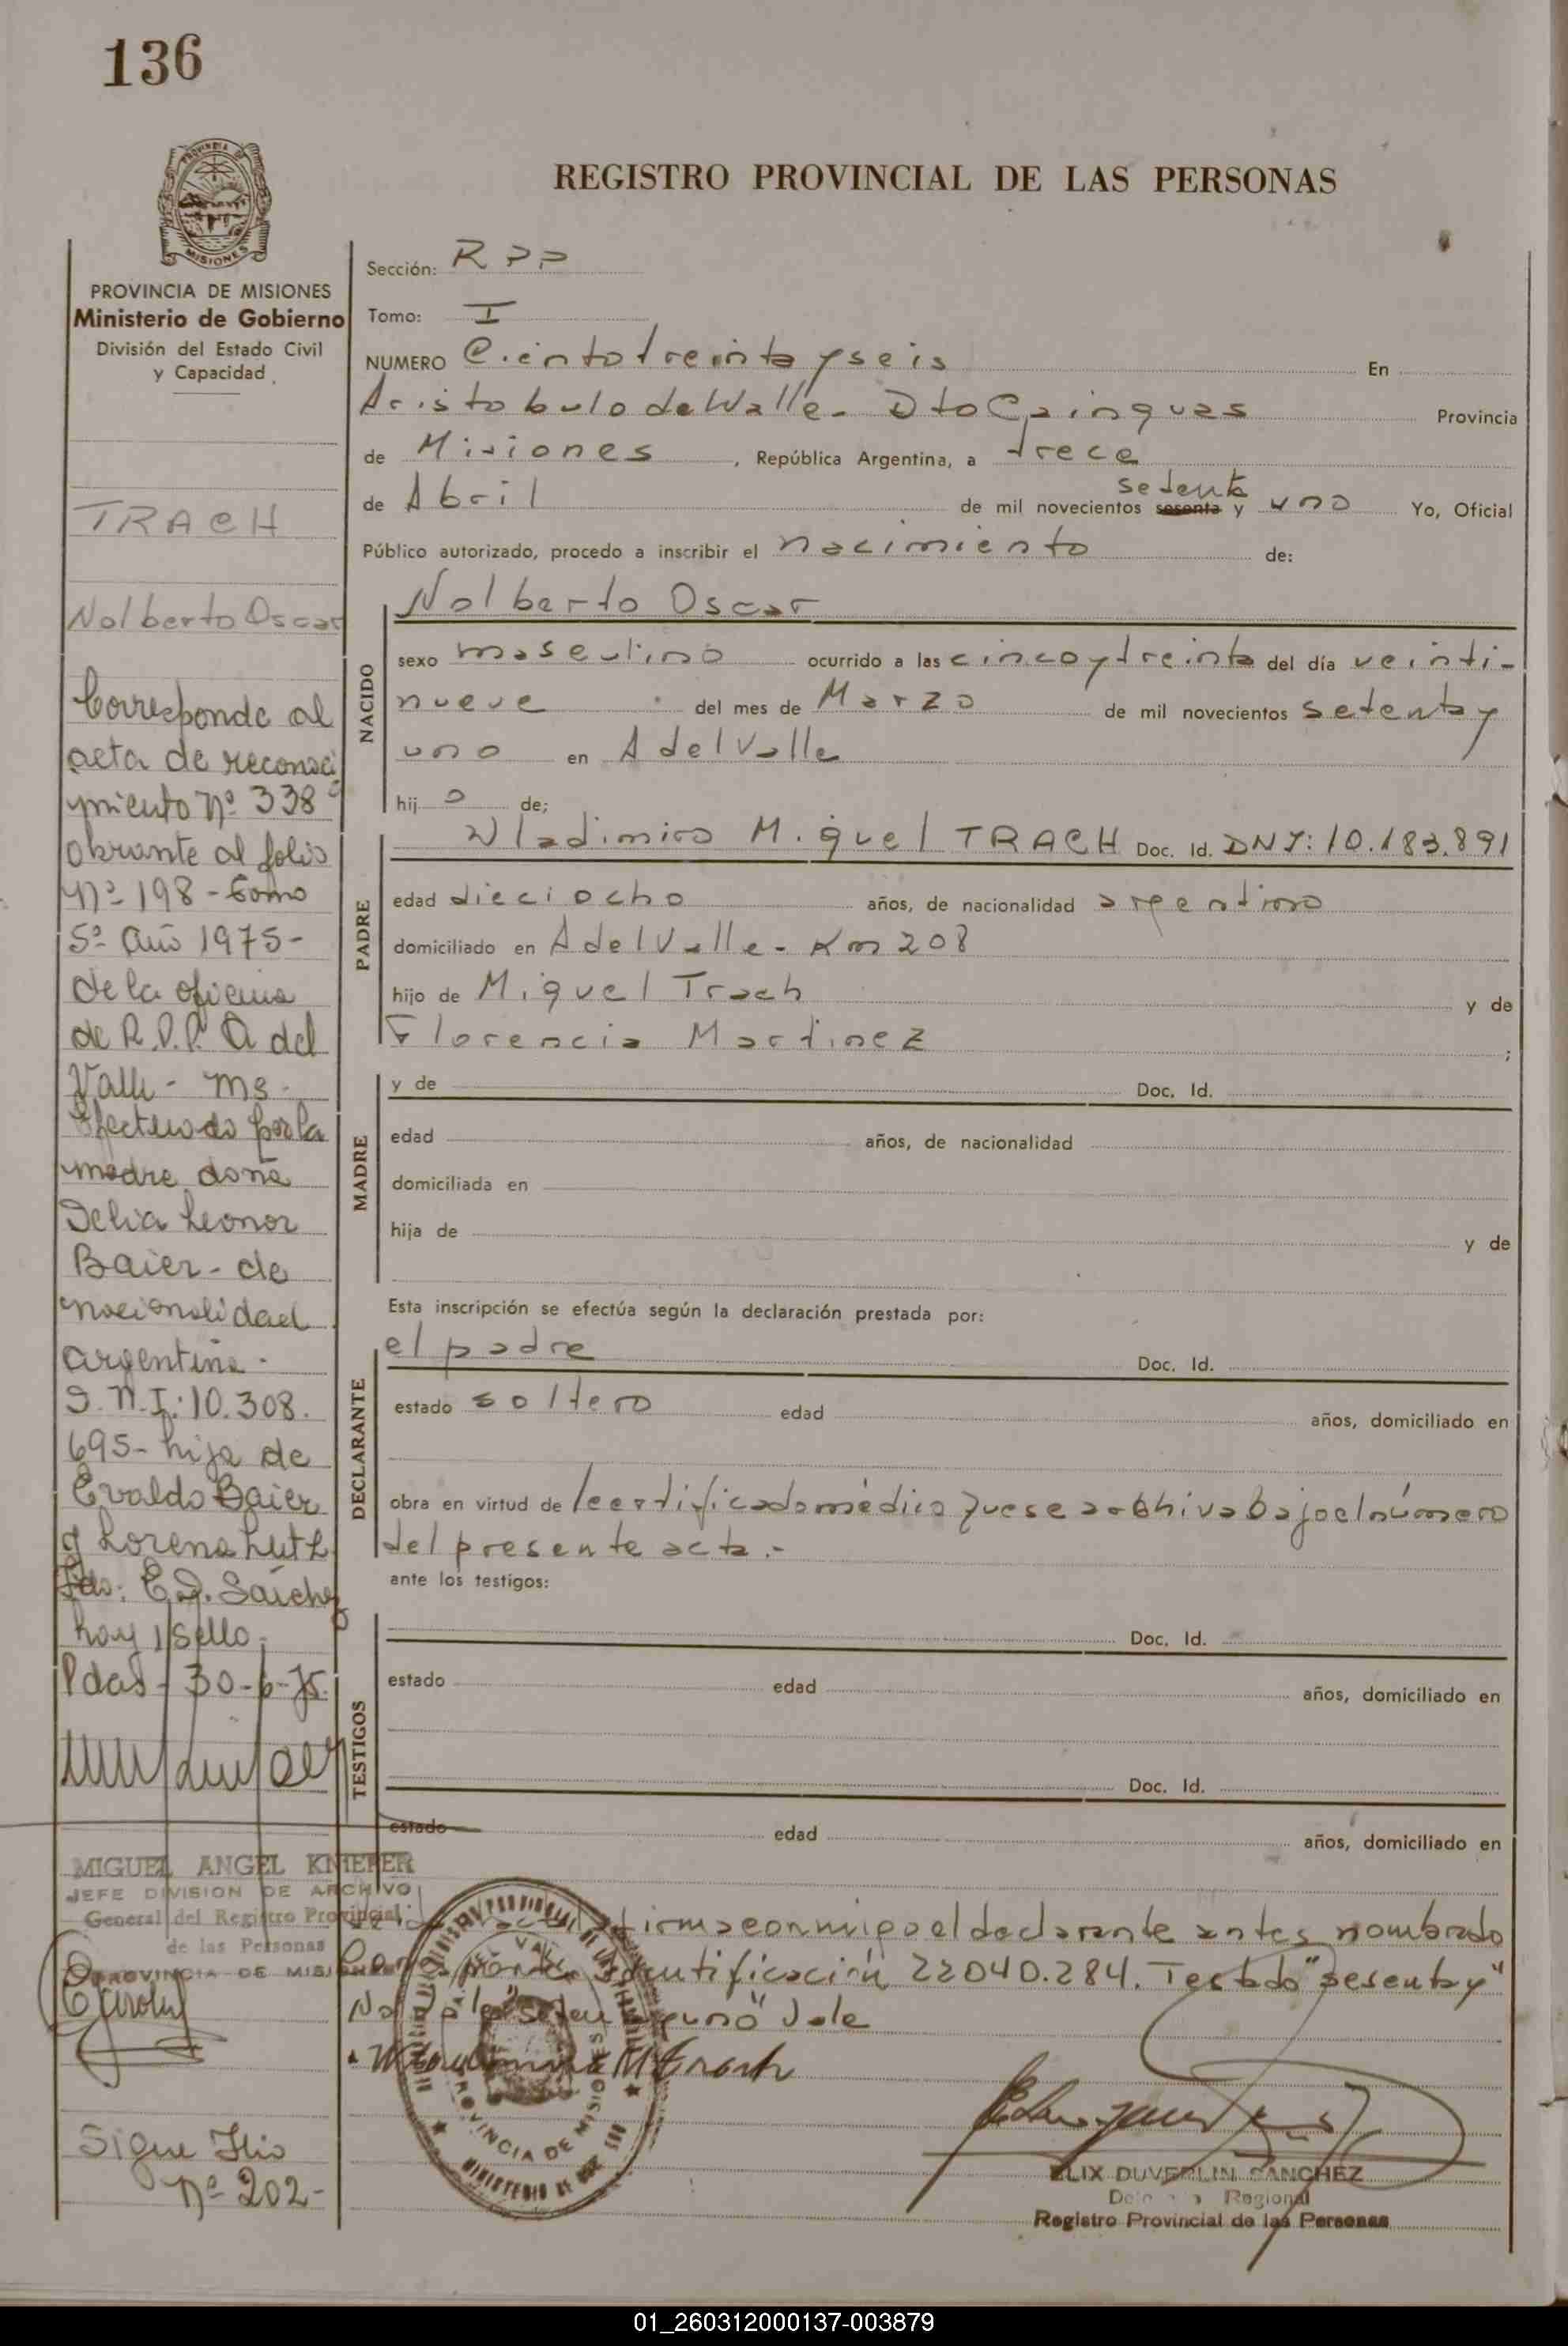 136
PROVINCIA DE
MISIONES
REGISTRO PROVINCIAL DE LAS PERSONAS
PROVINCIA DE MISIONES
Ministerio de Gobierno
División del Estado Civil
y Capacidad
TRACH
Nolberto Oscar
Corresponde al
acta de reconoci
miento Nº 338
obrante al folio
Nº 198 - tomo
5º año 1975-
de la oficina
de R.P.P. A del
Valle - Ms -
Efectuado por la
madre doña
Delia Leonor
Baier - de
nacionalidad
argentina -
D.N.I: 10.308.
695- hija de
Evaldo Baier
y Lorena Luth
Fdo: E.D. Sánchez
hay 1 sello
Pdas - 30-6-75.
MIGUEL ANGEL KNIEPER
JEFE DIVISION DE ARCHIVO
General del Registro Provincial
de las Personas
PROVINCIA DE MISIONES
Sigue Flio
Nº 202-
Sección: RPP
Tomo: I
NUMERO Ciento treinta y seis En
Aristobulo del Valle - Dto Cainguas Provincia
de Misiones, República Argentina, a trece
de Abril de mil novecientos sesenta y setenta uno Yo, Oficial
Público autorizado, procedo a inscribir el nacimiento de:
NACIDO
Nolberto Oscar
sexo masculino ocurrido a las cinco y treinta del día veinti-
nueve del mes de Marzo de mil novecientos setenta y
uno en A del Valle
hij o de;
PADRE
Wladimiro Miguel TRACH Doc. Id. DNI: 10.183.891
edad dieciocho años, de nacionalidad argentino
domiciliado en A del Valle - Km 208
hijo de Miguel Trach y de
Florencia Martinez ;
MADRE
y de Doc. Id.
edad años, de nacionalidad
domiciliada en
hija de y de
Esta inscripción se efectúa según la declaración prestada por:
DECLARANTE
el padre Doc. Id.
estado soltero edad años, domiciliado en
obra en virtud de certificado médico que se archiva bajo el número
del presente acta.-
ante los testigos:
TESTIGOS
Doc. Id.
estado edad años, domiciliado en
Doc. Id.
estado edad años, domiciliado en
firma conmigo el declarante antes nombrado
identificación 22040.284. Testado "sesenta y"
No Vale "setenta y uno" Vale
PROVINCIA DE MISIONES
ELIX DUVERLIN SANCHEZ
Delegado Regional
Registro Provincial de las Personas
01_260312000137-003879